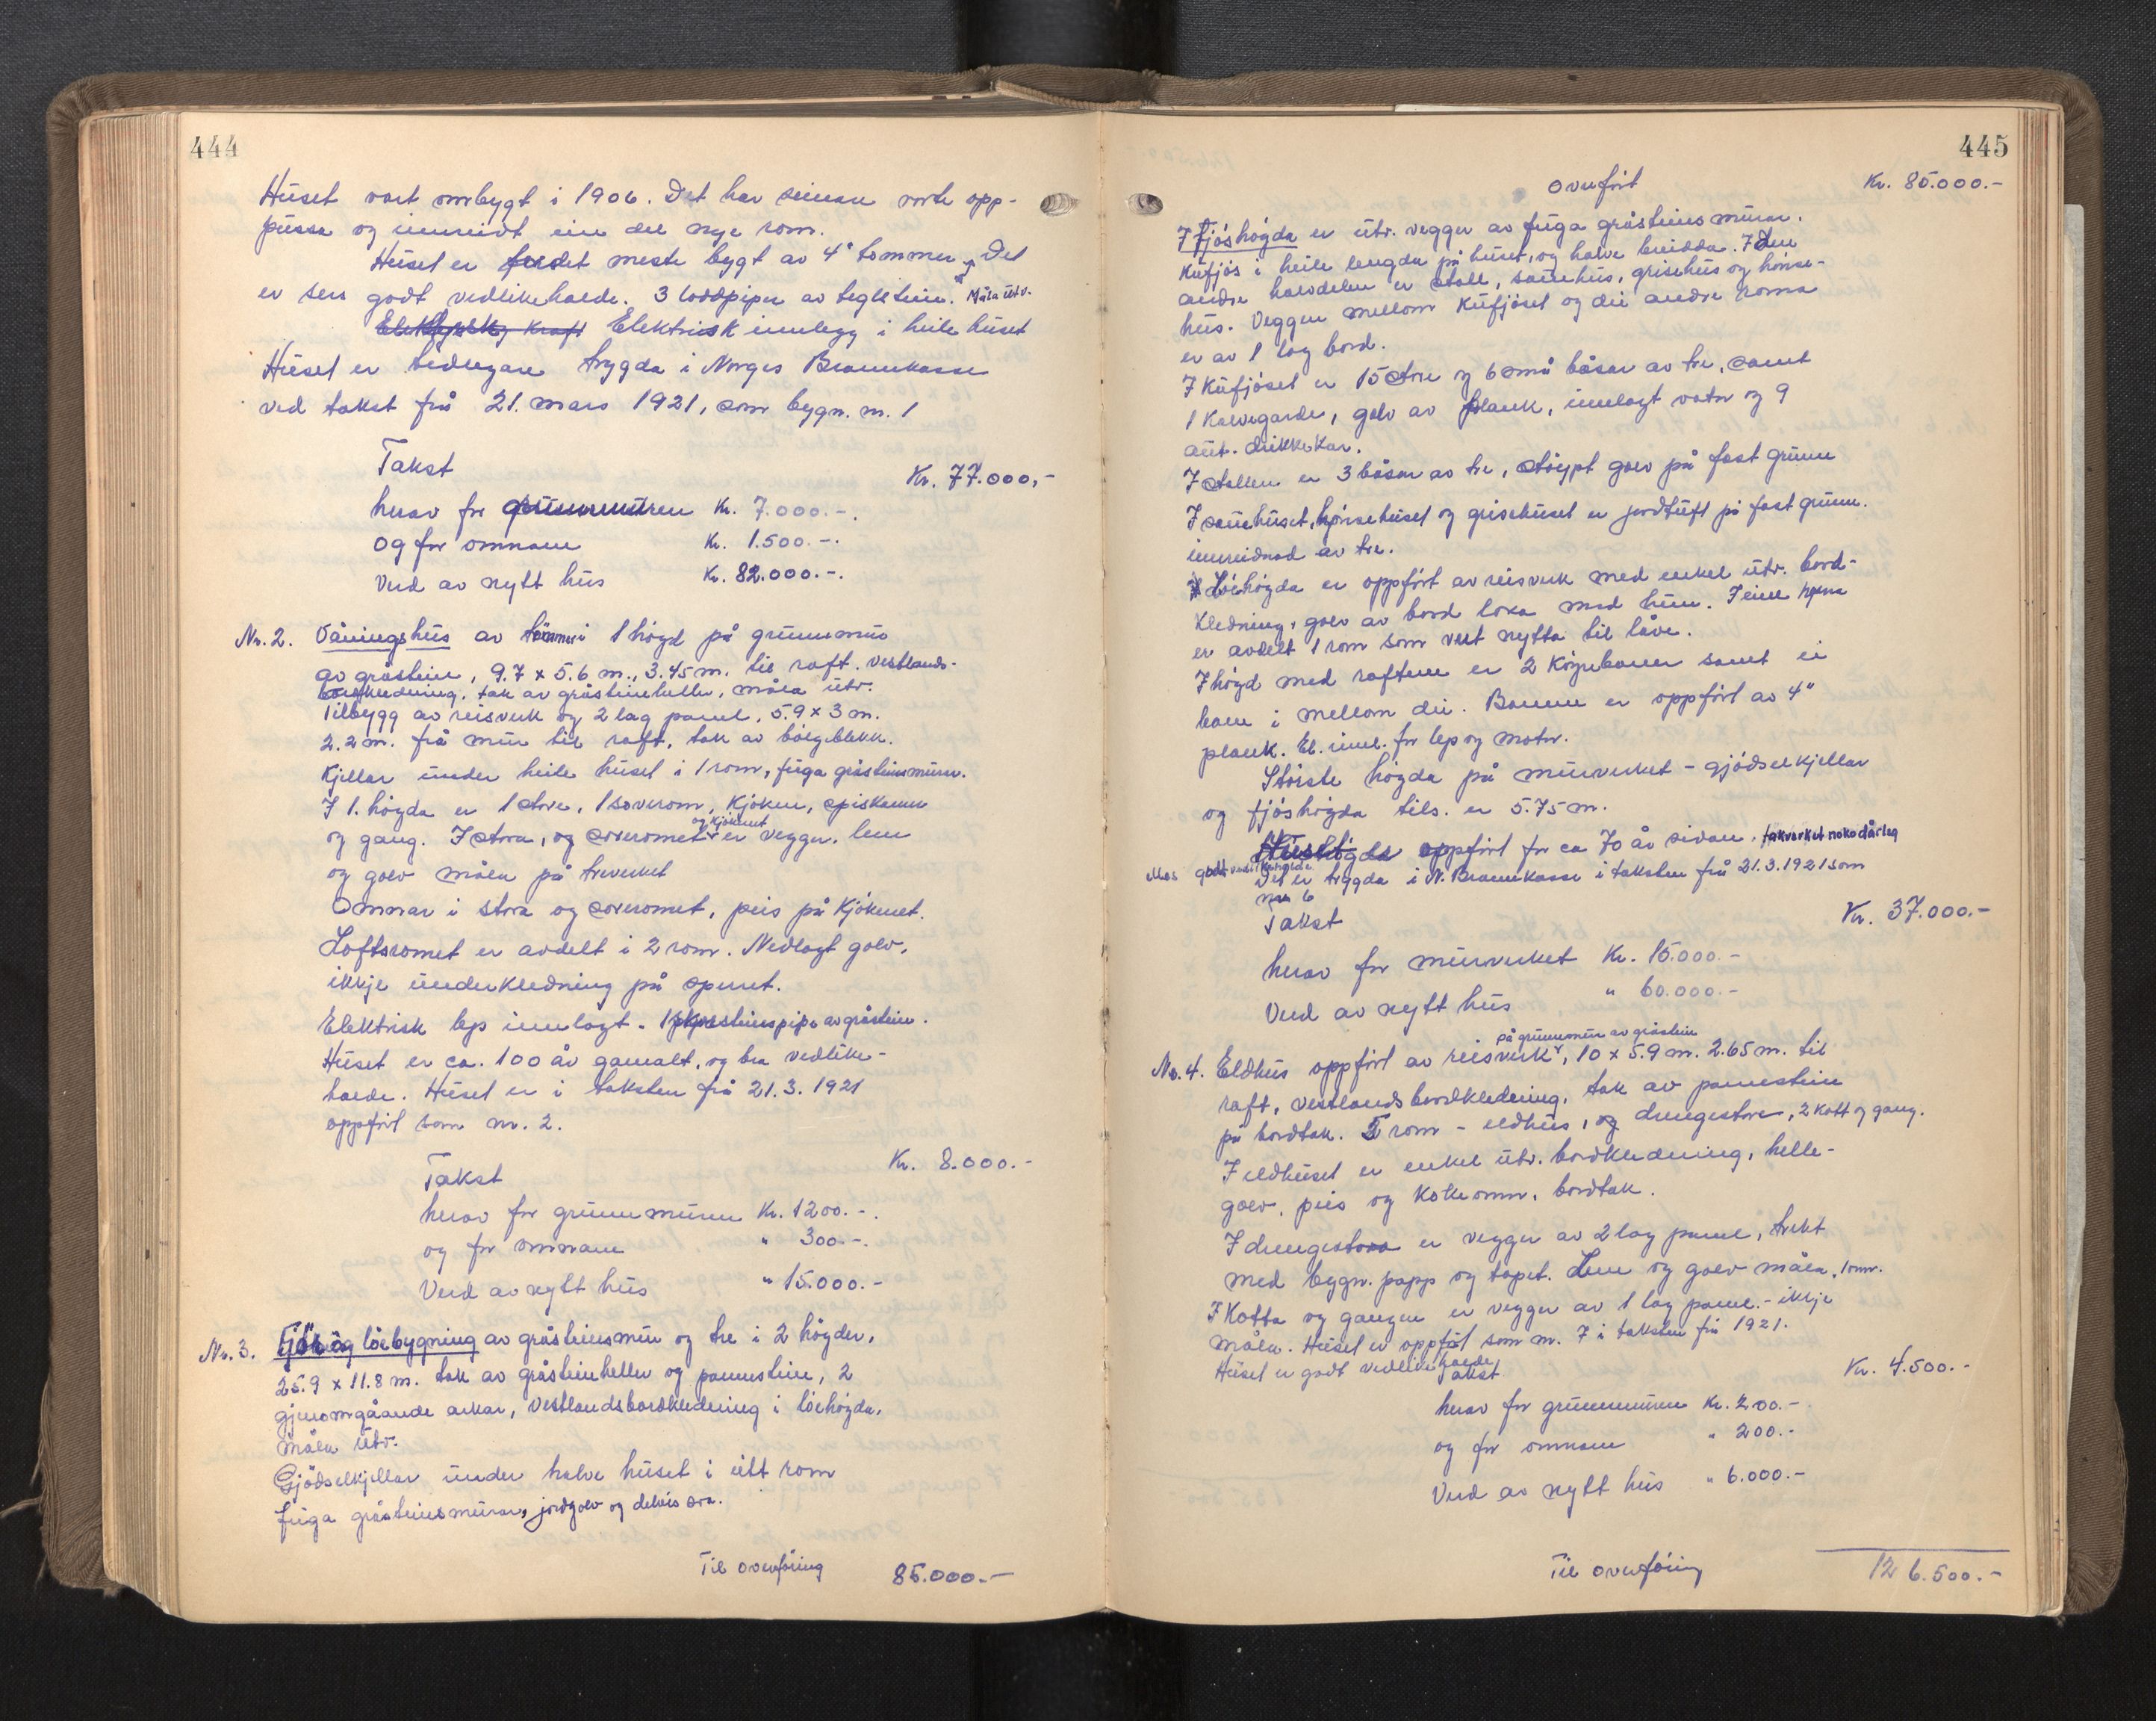 444
Huset vart ombygt i 1906. Det har seinare vorte opp-
pussa og innreidt ein del nye rom.
Huset er for det meste bygt av 4" tommer. Det
er sers godt vedlikehalde. 3 loddpiper av teglstein. Måla utv.
Elektrisk kraft Elektrisk innlegg i heile huset
Huset er tidlegare trygda i Norges Brannkasse
ved takst frå 21. mars 1921, som bygn. nr. 1
Takst Kr. 77.000,-
herav for grunnmuren Kr. 7.000.-.
og for omnane Kr. 1.500.-.
Verd av nytt hus Kr. 82.000.-.
Nr. 2. Våningshus av tømmer i 1 høgd på grunnmur
av gråstein, 9.7 x 5.6 m., 3.45 m. til raft. Vestlands-
bordkledning, tak av gråsteinheller, måla utv.
Tilbygg av reisverk og 2 lag panel, 5.9 x 3 m.
2.2 m. frå mur til raft, tak av bølgeblekk.
Kjellar under heile huset i 1 rom, fuga gråsteinsmurar.
I 1. høgda er 1 stove, 1 soverom, kjøken, spiskammer
og gang. I stova, og soveromet og kjøkenet er vegger, lem
og golv måla på treverket
Omnar i stova og soveromet, peis på kjøkenet.
Loftsromet er avdelt i 2 rom. Nedlagt golv,
ikkje underkledning på sperret.
Elektrisk lys innlagt. 1 pipe av gråstein.
Huset er ca. 100 år gamalt, og bra vedlike-
halde. Huset er i taksten frå 21.3.1921
oppført som nr. 2.
Takst Kr. 8.000.-
herav for grunnmuren Kr. 1200.-.
og for omnane " 300.-.
Verd av nytt hus " 15.000.-
Nr. 3. Fjøs og løebygning av gråsteinsmur og tre i 2 høgder,
25.9 x 11.8 m. tak av gråsteinheller og pannestein, 2
gjennomgåande arkar, Vestlandsbordkledning i løehøgda,
måla utv.
Gjødselkjellar under halve huset i eitt rom
fuga gråsteinsmurar, jordgolv og delvis
Til overføring 85.000.-
445
Overført Kr. 85.000.-
I fjøshøgda er utv. vegger av fuga gråsteinsmurar.
Kufjøs i heile lengda på huset, og halve breidda. I den
andre halvdelen er stall, sauehus, grisehus og hønse-
hus. Veggen mellom kufjøset og dei andre roma
er av 1 lag bord.
I kufjøset er 15 store og 6 små båsar av tre, samt
1 kalvegarde, golv av plank, innlagt vatn og 9
aut. drikkekar.
I stallen er 3 båsar av tre, støypt golv på fast grunn
I sauehuset, hønsehuset og grisehuset er jordtuft på fast grunn.
innreidnad av tre.
Løehøgda er oppført av reisverk med enkel utv. bord-
kledning, golv av bord I eine
er avdelt 1 rom som vert nytta til låve.
I høgd med raftene er 2 køyrebaner samt ei
bane i mellom dei. Banene er oppført av 4"
plank. El. innl. for lys og motor.
Største høgda på murverket - gjødselkjellar
og fjøshøgda tils. er 5.75 m.
Huset oppført for ca 70 år sidan. takverket noko dårleg
elles godt vedlikehalde
Det er trygda i N. Brannkasse i taksten frå 21.3.1921 som
nr. 6
Takst Kr. 37.000.-
herav for murverket Kr. 15.000.-
Verd av nytt hus " 60.000.-
på grunnmur av gråstein
Nr. 4. Eldhus oppført av reisverk, 10 x 5.9 m. 2.65 m. til
raft, vestlandsbordkledning, tak av pannestein
på bordtak. 5 rom - eldhus, og drengestove, 2 kott og gang.
I eldhuset er enkel utv. bordkledning, helle-
golv, peis og kokeomn, bordtak.
I drengestova er vegger av 2 lag panel, trekt
med bygn. papp og tapet. Lem og golv måla. 1 omn.
I kotta og gangen er vegger av 1 lag panel.- ikkje
måla. Huset er oppført som nr. 7 i taksten frå 1921.
Huset er godt vedlikehalde
Takst Kr. 4.500.-
herav for grunnmuren Kr. 200.-
og for omnane " 200.-
Verd av nytt hus " 6.000.-
Til overføring 126.500.-